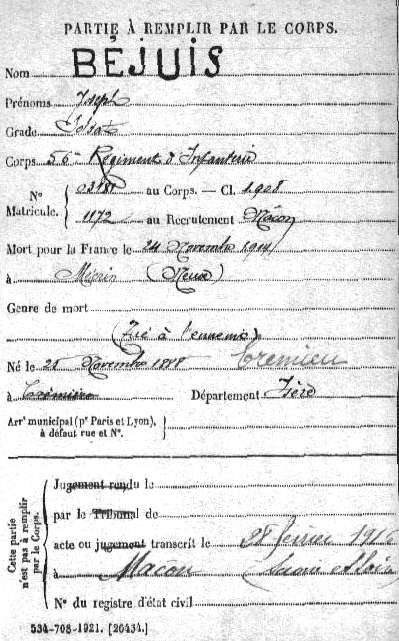 PARTIE À REMPLIR PAR LE CORPS.
Nom BÉJUIS
Prénoms Joseph
Grade Soldat
Corps 56e Régiment d'Infanterie
No Matricule. 03481 au Corps. — Cl. 1908
1172 au Recrutement Mâcon
Mort pour la France le 24 Novembre 1914
à (Meuse)
Genre de mort
(Tué à l'ennemi)
Né le 25 Novembre 1888 Crémieu
à Département Isère
Arrt municipal (pr Paris et Lyon), à défaut rue et No.
Cette partie n'est pas à remplir par le Corps.
Jugement rendu le
par le Tribunal de
acte ou jugement transcrit le 28 février 1916
à Macon (Saone et Loire)
No du registre d'état civil
534-708-1921. [26434.]